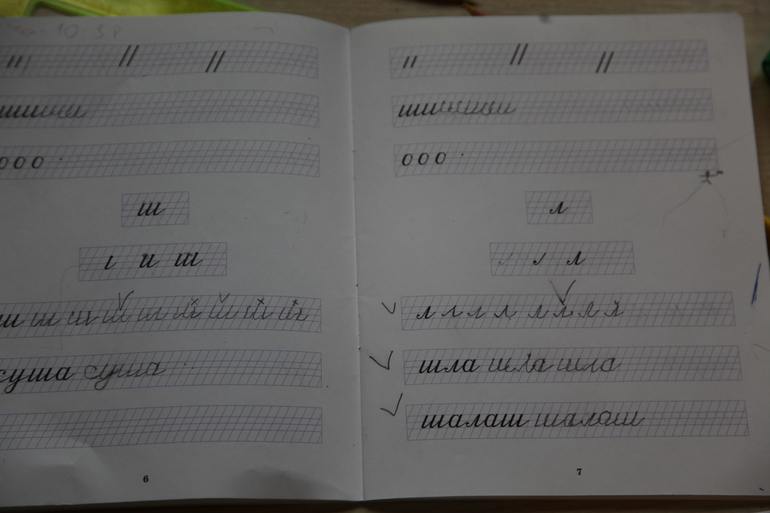 шишиши
ооо
ш
и ш
ш ш ш ш ш ш ш ш
суша суша
6
шишиши
ооо
л
л
л л л л л л л л
шла шла шла
шалаш шалаш
7